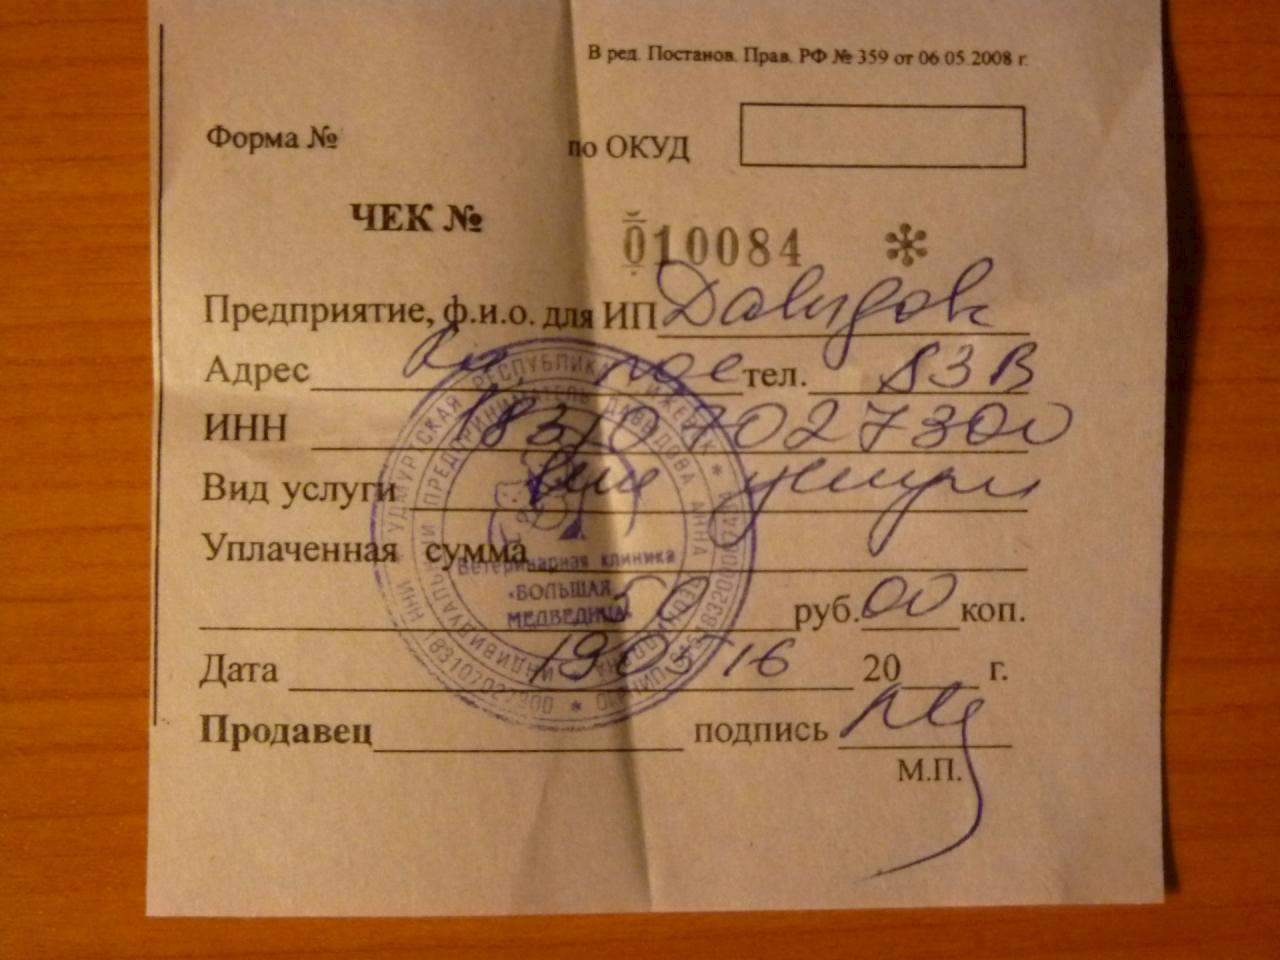 В ред. Постанов. Прав. РФ № 359 от 06.05.2008 г.
Форма № по ОКУД
ЧЕК № 010084 *
Предприятие, ф.и.о. для ИП Давыдова
Адрес тел. 83В
ИНН 183107027300
Вид услуги вет услуги
Уплаченная сумма
50 руб. 00 коп.
Дата 20 г.
Продавец подпись
М.П.
УДМУРТСКАЯ РЕСПУБЛИКА Г. ИЖЕВСК *
ИНДИВИДУАЛЬНЫЙ ПРЕДПРИНИМАТЕЛЬ ДАВЫДОВА АННА
ИНН 183107027300 *
Ветеринарная клиника
«БОЛЬШАЯ
МЕДВЕДИЦА»